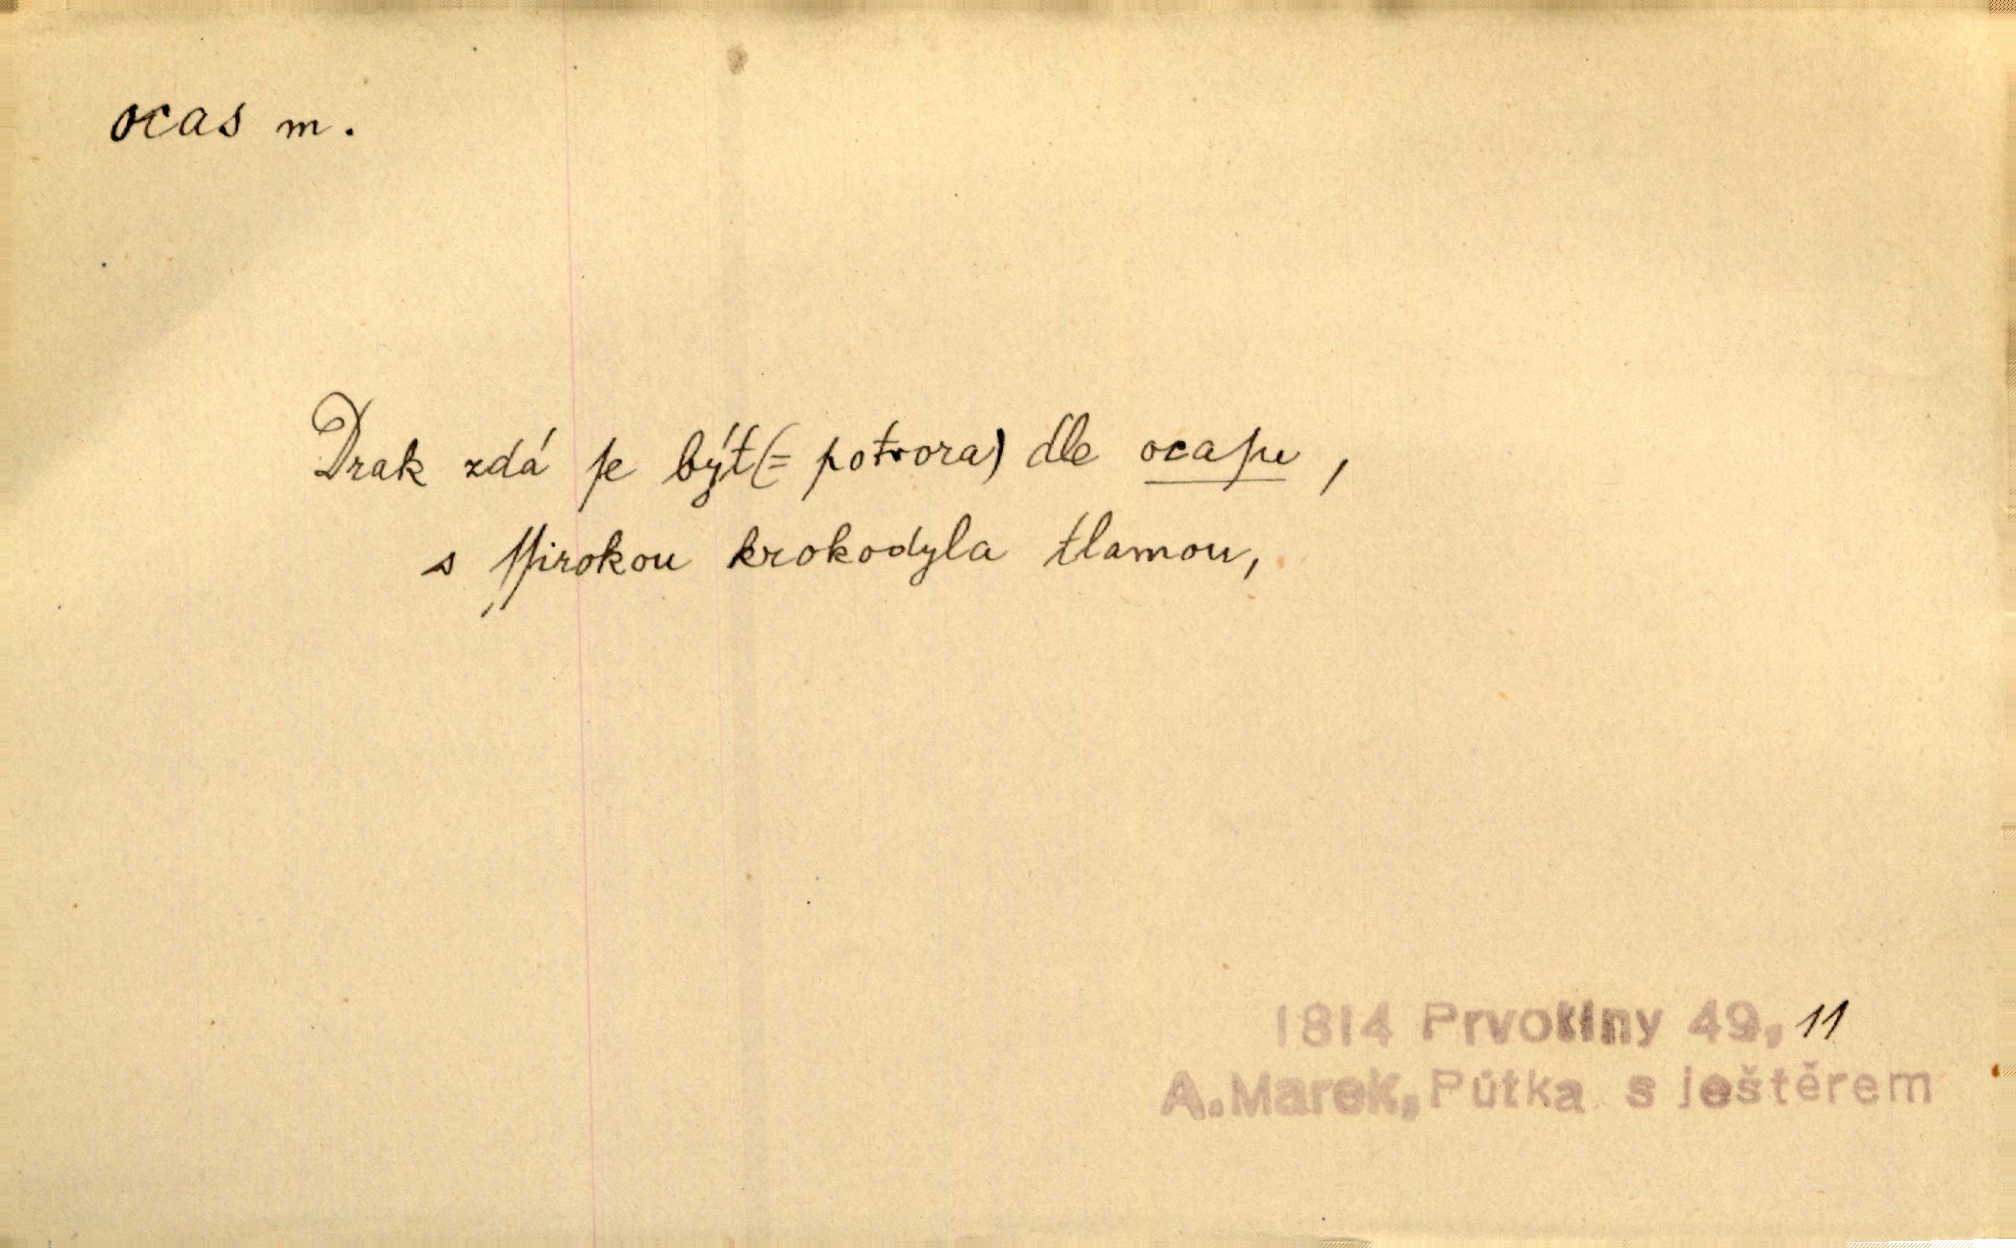 ocas m.
Drak zdá ſe být (= potvora) dle ocaſu,
s ſſirokou krokodyla tlamou,
1814 Prvotiny 49, 11
A. Marek, Půtka s ještěrem